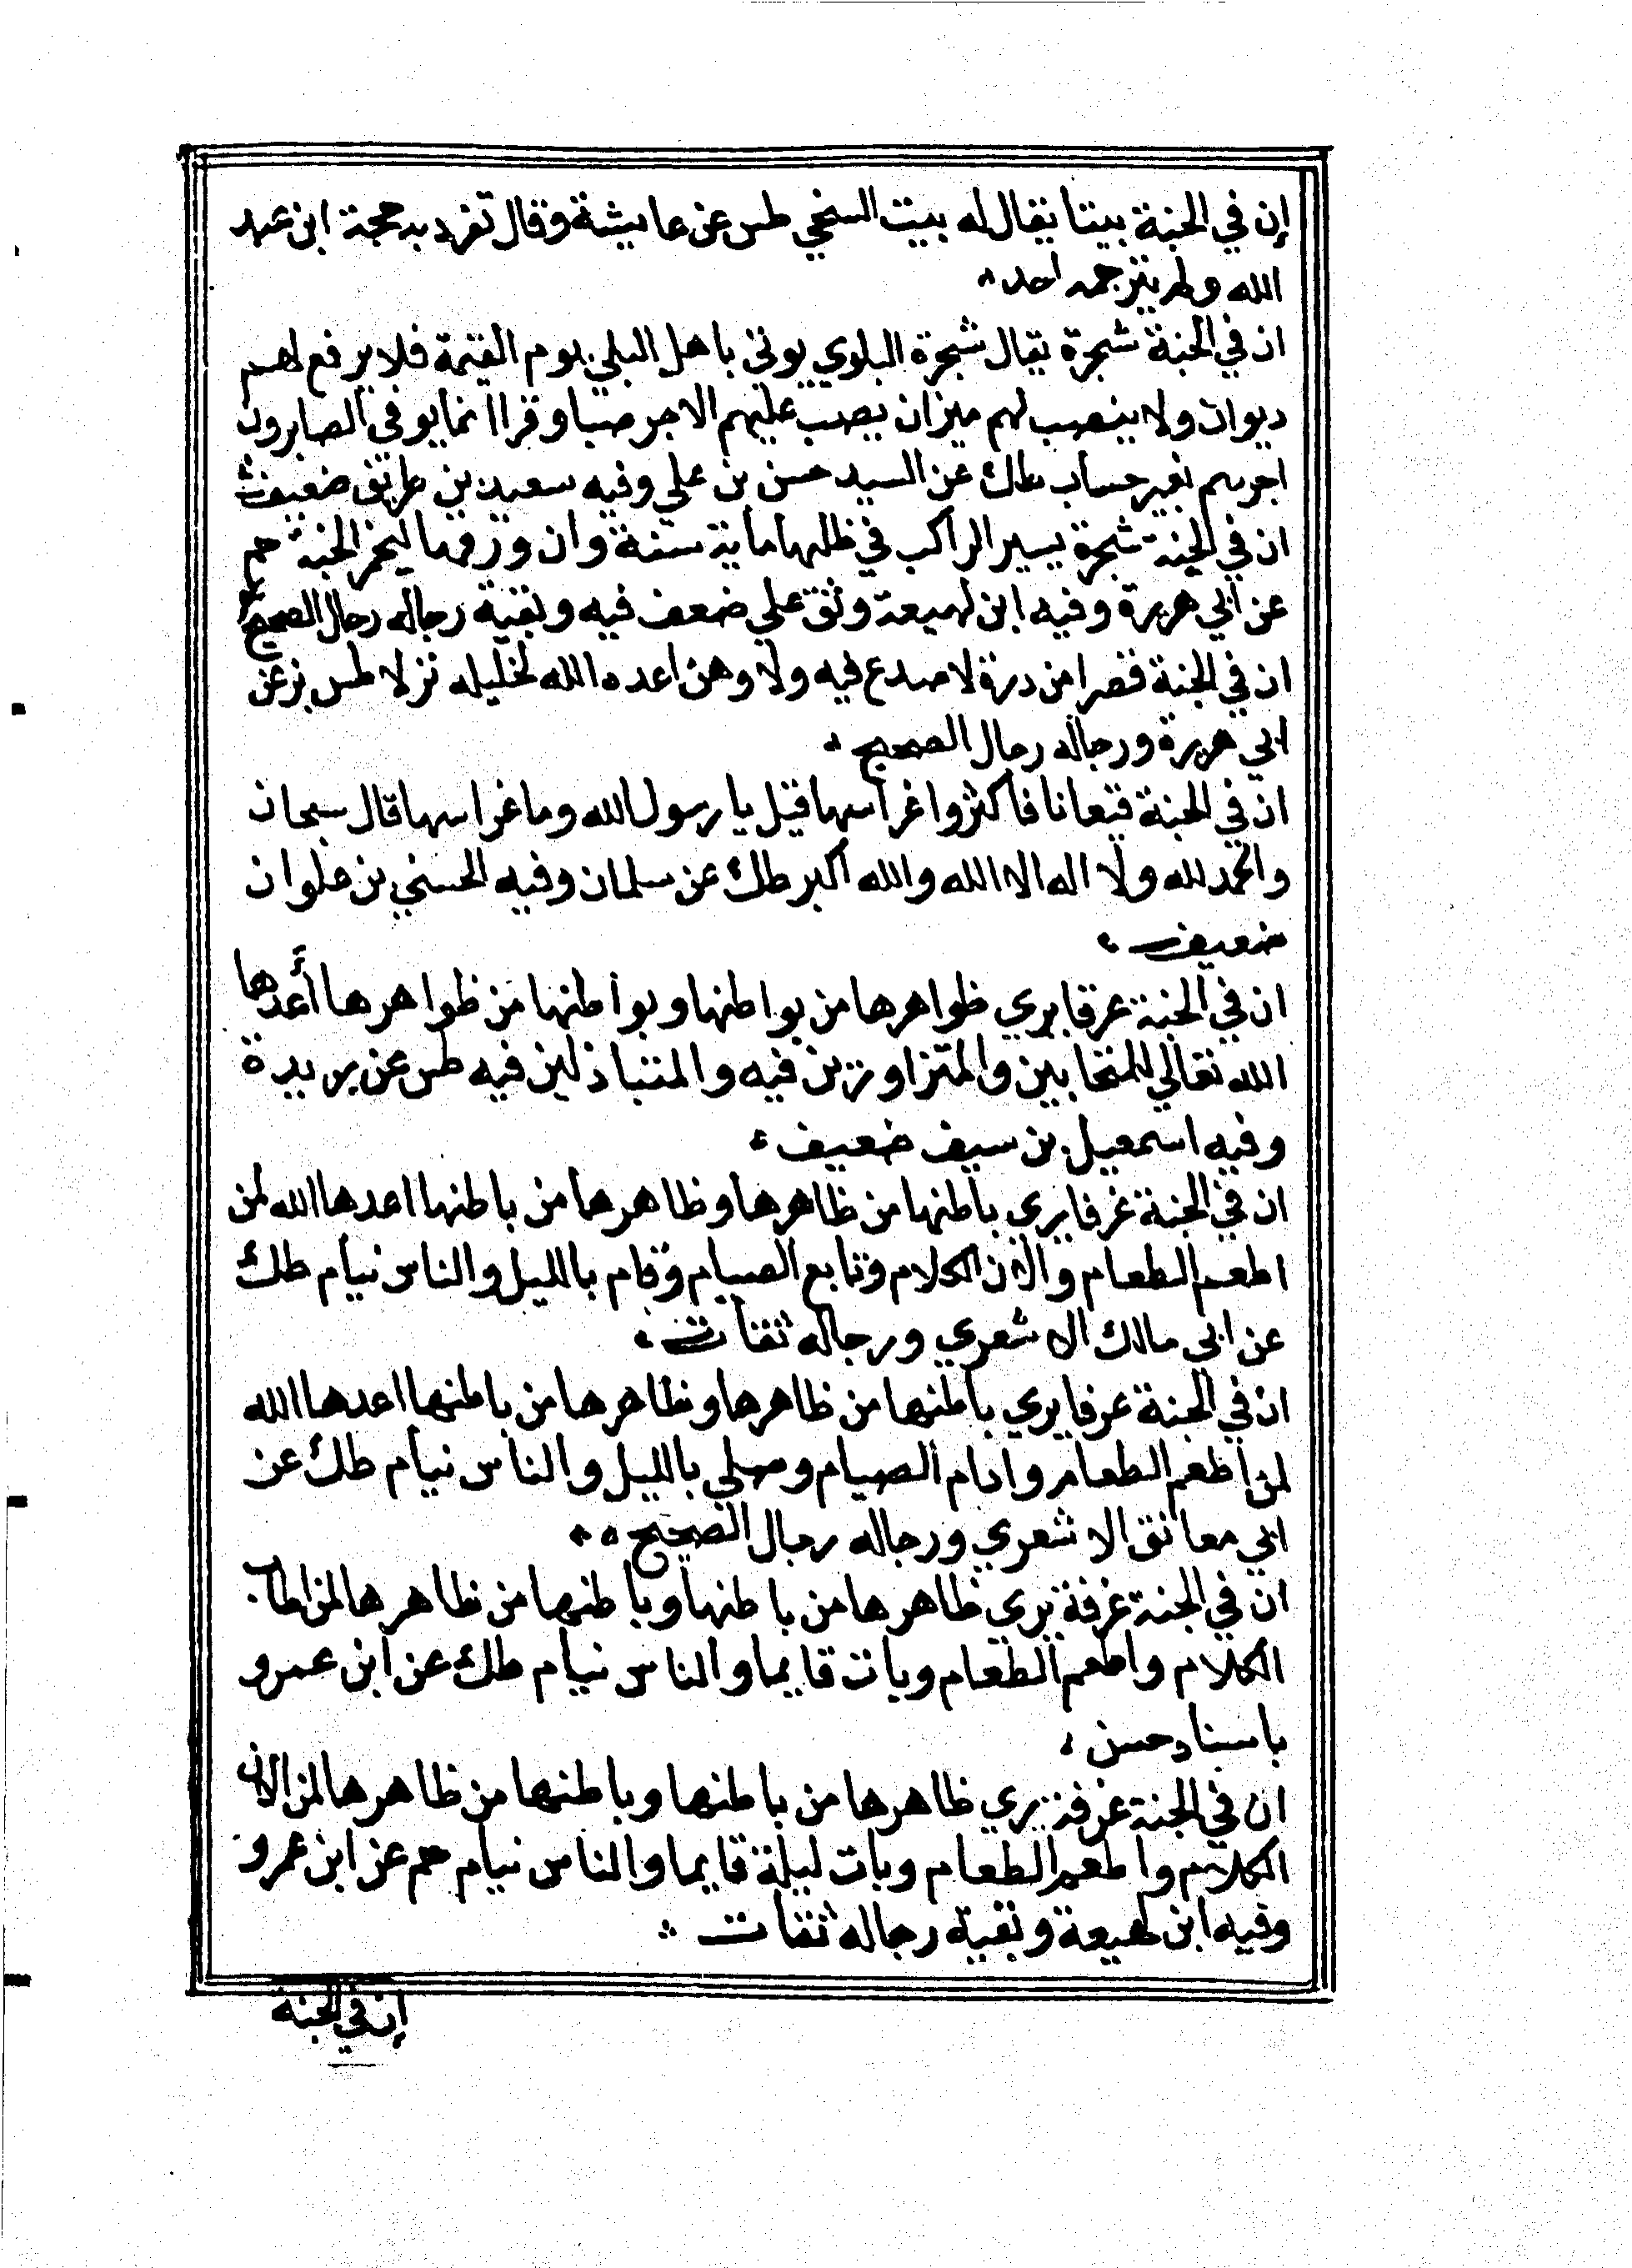 إن في الجنة بيتا يقال له بيت السخي طس عن عايشة وقال تفرد به حجة ابن عبد
الله ولم يترجمه احد
ان في الجنة شجرة يقال شجرة البلوي يوتي باهل البلي يوم القيمة فلا يرفع لهم
ديوان ولا ينصب لهم ميزان يصب عليهم الاجر صبا وقرا انما يوفي الصابرون
اجرهم بغير حساب طك عن السيد حسن بن علي وفيه سعيد بن طريف ضعيف
ان في الجنة شجرة يسير الراكب في ظلها ماية سنة وان ورقها ليخمر الجنة حم
عن ابي هريرة وفيه ابن لهيعة وثق علي ضعف فيه وبقية رجاله رجال الصحيح
ان في الجنة قصرا من درة لا صدع فيه ولا وهن اعده الله لخليله نزلا طس بز عن
ابي هريرة ورجاله رجال الصحيح
ان في الجنة قيعانا فاكثروا غراسها قيل يا رسول الله وما غراسها قال سبحان
والحمد لله ولا اله الا الله والله اكبر طك عن سلمان وفيه الحسني بن علوان
ضعيف
ان في الجنة غرفا يري ظواهرها من بواطنها وبواطنها من ظواهرها أعدها
الله تعالي للمتحابين والمتزاورين فيه والمتباذلين فيه طس عن بريدة
وفيه اسمعيل بن سيف ضعيف
ان في الجنة غرفا يري باطنها من ظاهرها وظاهرها من باطنها اعدها الله لمن
اطعم الطعام والان الكلام وتابع الصيام وقام بالليل والناس نيام طك
عن ابي مالك الاشعري ورجاله ثقات
ان في الجنة غرفا يري باطنها من ظاهرها وظاهرها من باطنها اعدها الله
لمن اطعم الطعام وادام الصيام وصلي بالليل والناس نيام طك عن
ابي معانق الاشعري ورجاله رجال الصحيح
ان في الجنة غرفة يري ظاهرها من باطنها وباطنها من ظاهرها لمن اطاب
الكلام واطعم الطعام وبات قايما والناس نيام طك عن ابن عمرو
باسناد حسن
ان في الجنة غرفة يري ظاهرها من باطنها وباطنها من ظاهرها لمن الان
الكلام واطعم الطعام وبات ليلة قايما والناس نيام حم عن ابن عمرو
وفيه ابن لهيعة وبقية رجاله ثقات
إن في الجنة